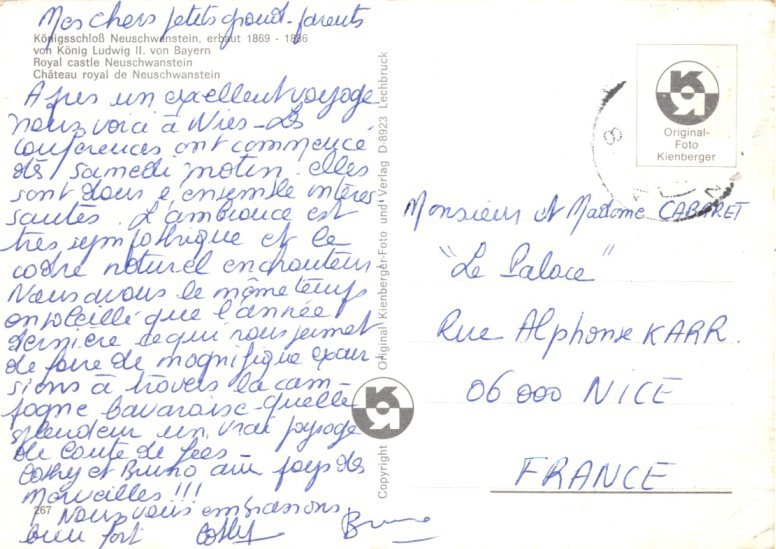 Mes chers petits grand-parents
Königsschloß Neuschwanstein, erbaut 1869 - 1886
von König Ludwig II. von Bayern
Royal castle Neuschwanstein
Château royal de Neuschwanstein
Après un excellent voyage
nous voici à Wies - Les
conférences ont commencé
dès samedi matin. elles
sont dans l'ensemble intéres
santes. L'ambiance est
très sympathique et le
cadre naturel enchanteur.
Nous avons le même temps
ensoleillé que l'année
dernière ce qui nous permet
de faire de magnifique excur-
sions à travers la cam-
pagne bavaroise. quelle
splendeur un vrai paysage
de conte de fées -
Cathy et Bruno au pays des
merveilles !!!
267
Nous vous embrassons
bien fort Cathy Bruno
Copyright Original Kienberger-Foto und Verlag D-8923 Lechbruck
Original-
Foto
Kienberger
Monsieur et Madame CABARET
"Le Palace"
Rue Alphonse KARR.
06 000 NICE
FRANCE